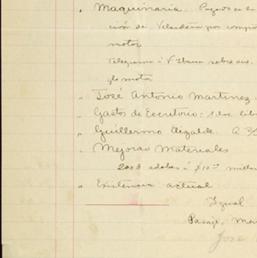 " Maquinaria. Pagado en la
ción de Velardeña por compos
motor
Telegrama á V
glo motor
" José Antonio Martinez
" Gastos de Escritorio: 1
" Guillermo Ugalde.
" Mejoras Materiales
2003 adobes á $10.— millar
" Existencia actual
Igual
Pasaje, Ma
José